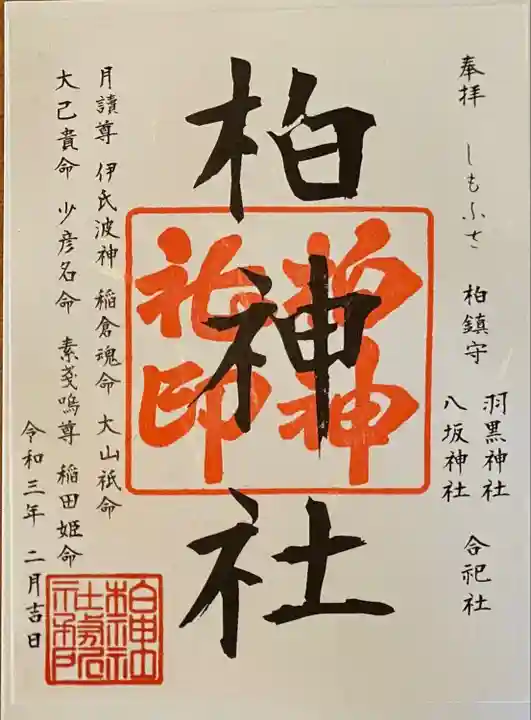 奉拝 しもふさ 柏鎮守 羽黒神社 合祀社
八坂神社
柏神社
柏神
社印
月讀尊 伊氐波神 稲倉魂命 大山祇命
大己貴命 少彦名命 素戔嗚尊 稲田姫命
令和三年 二月吉日
柏神社
社務所
之印